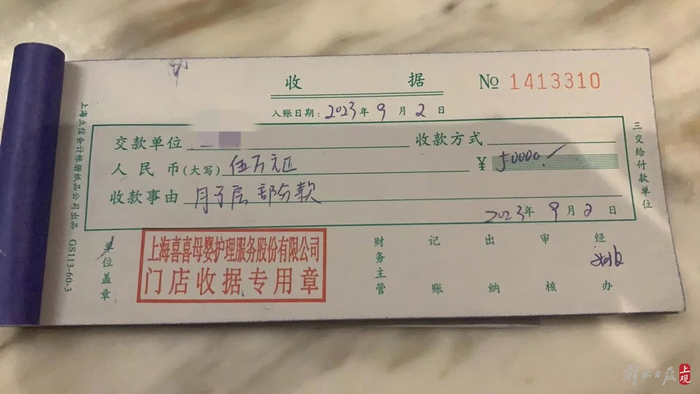 收 据 № 1413310
入账日期：2023年 9 月 2 日
交款单位 收款方式
人民币(大写) 伍万元正 ¥ 50000.-
收款事由 月子房 部分款
2023年 9 月 2 日
单位盖章
上海喜喜母婴护理服务股份有限公司
门店收据专用章
财务主管 记账 出纳 审核 经办
三交给付款单位
上海立信会计账册纸品公司出品 GS113-60-3
上观